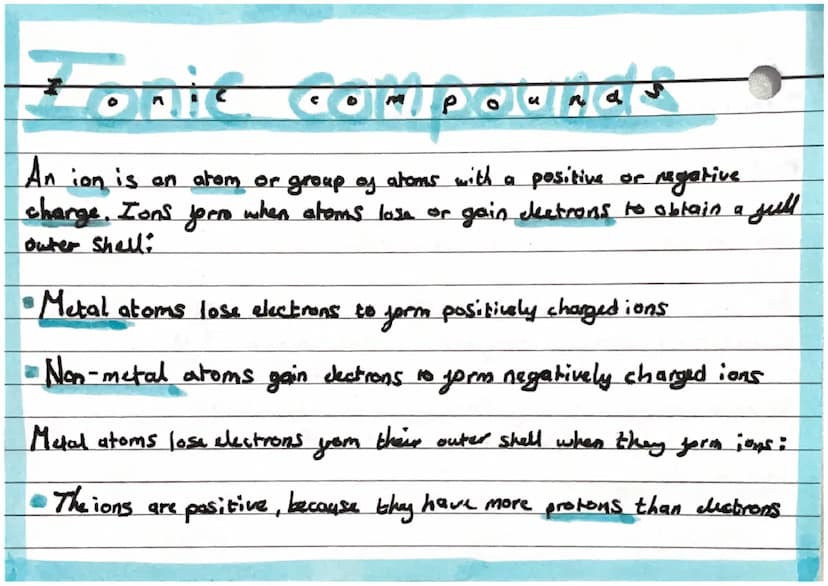 Ionic compounds
An ion is an atom or group of atoms with a positive or negative
charge. Ions form when atoms lose or gain electrons to obtain a full
outer shell:
Metal atoms lose electrons to form positively charged ions
Non-metal atoms gain electrons to form negatively charged ions
Metal atoms lose electrons from their outer shell when they form ions:
The ions are positive, because they have more protons than electrons